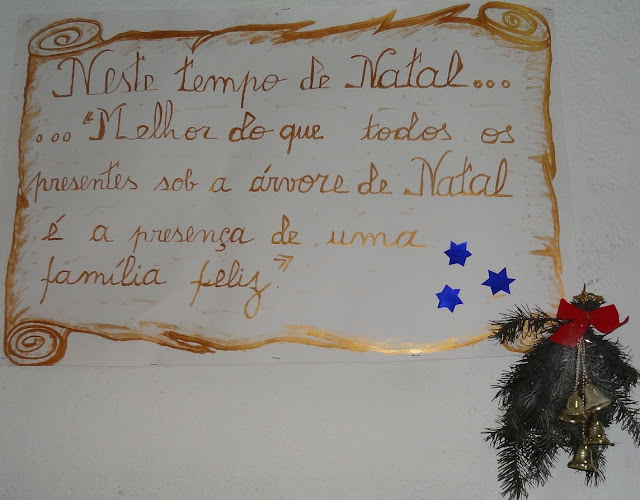 Neste tempo de Natal...
..."Melhor do que todos os
presentes sob a árvore de Natal
é a presença de uma
família feliz."